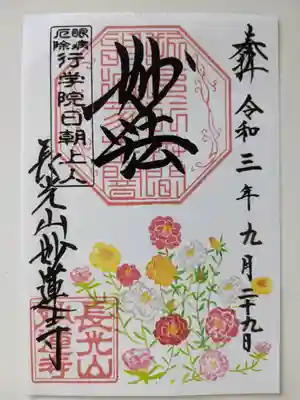 奉拝 令和三年九月二十九日
妙法
眼病
厄除
行学院日朝上人
長光山妙蓮寺
長光山
妙蓮寺